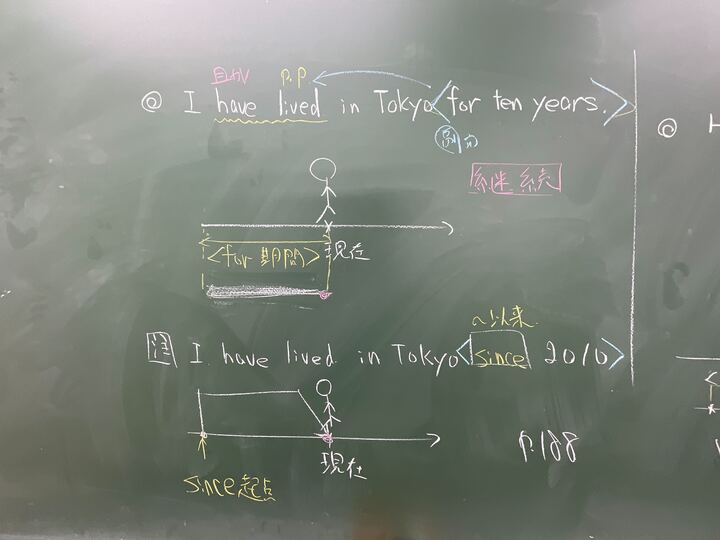 助V p.p
◎ I have lived in Tokyo <for ten years.>
副詞
継続
<for 期間> 現在
~以来
注 I have lived in Tokyo <since 2010>
現在
p.188
since 起点
◎ H